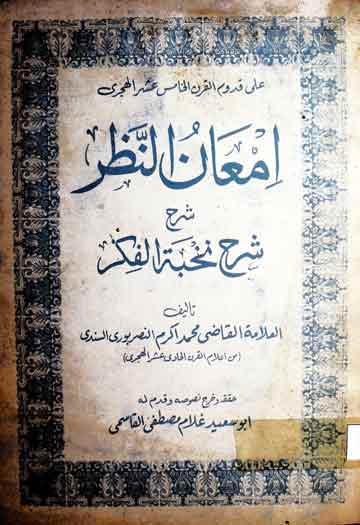 على قدوم القرن الخامس عشر الهجرى
امعان النظر
شرح
شرح نخبة الفكر
تاليف
العلامة القاضى محمد اكرم النصربورى السندى
(من اعلام القرن الحادى عشر الهجرى)
حققه وخرج نصوصه وقدم له
ابو سعيد غلام مصطفى القاسمى